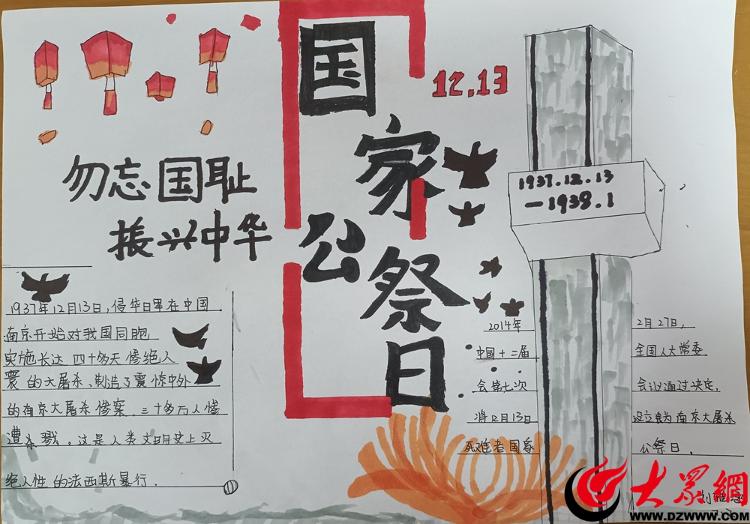 国家公祭日
12.13
勿忘国耻
振兴中华
1937.12.13
-1938.1
1937年12月13日,侵华日军在中国
南京开始对我国同胞
实施长达四十多天惨绝人
寰的大屠杀,制造了震惊中外
的南京大屠杀惨案,三十多万人惨
遭杀戮。这是人类文明史上灭
绝人性的法西斯暴行。
2014年 2月27日,
中国十二届 全国人大常委
会第七次 会议通过决定,
将12月13日 设立为南京大屠杀
死难者国家 公祭日。
大眾網
WWW.DZWWW.COM